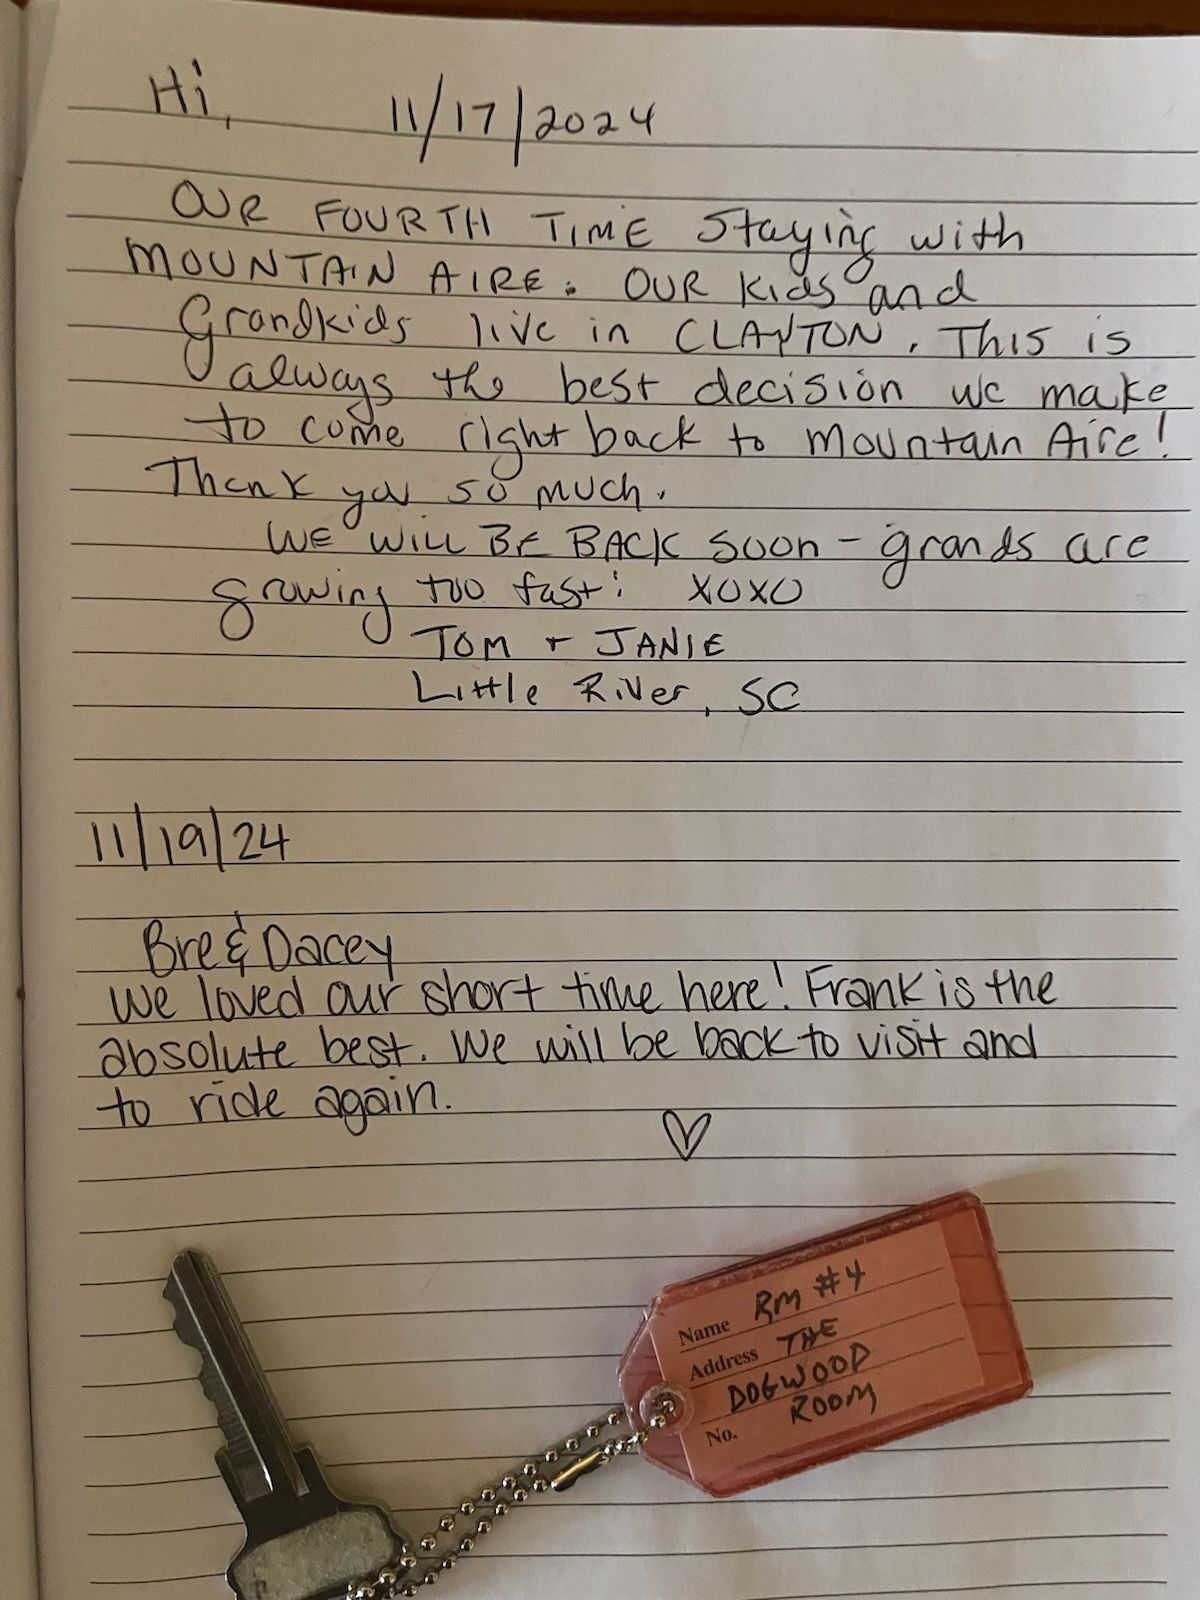 Hi,
11/17/2024
OUR FOURTH TIME Staying with
MOUNTAIN AIRE. OUR Kids and
Grandkids live in CLAYTON. This is
always the best decision we make
to come right back to Mountain Aire!
Thank you so much.
WE WILL BE BACK Soon - grands are
growing too fast! XOXO
TOM + JANIE
Little River, SC
11/19/24
Bre & Dacey
We loved our short time here! Frank is the
absolute best. We will be back to visit and
to ride again.
Name RM #4
Address THE
DOGWOOD
No. ROOM